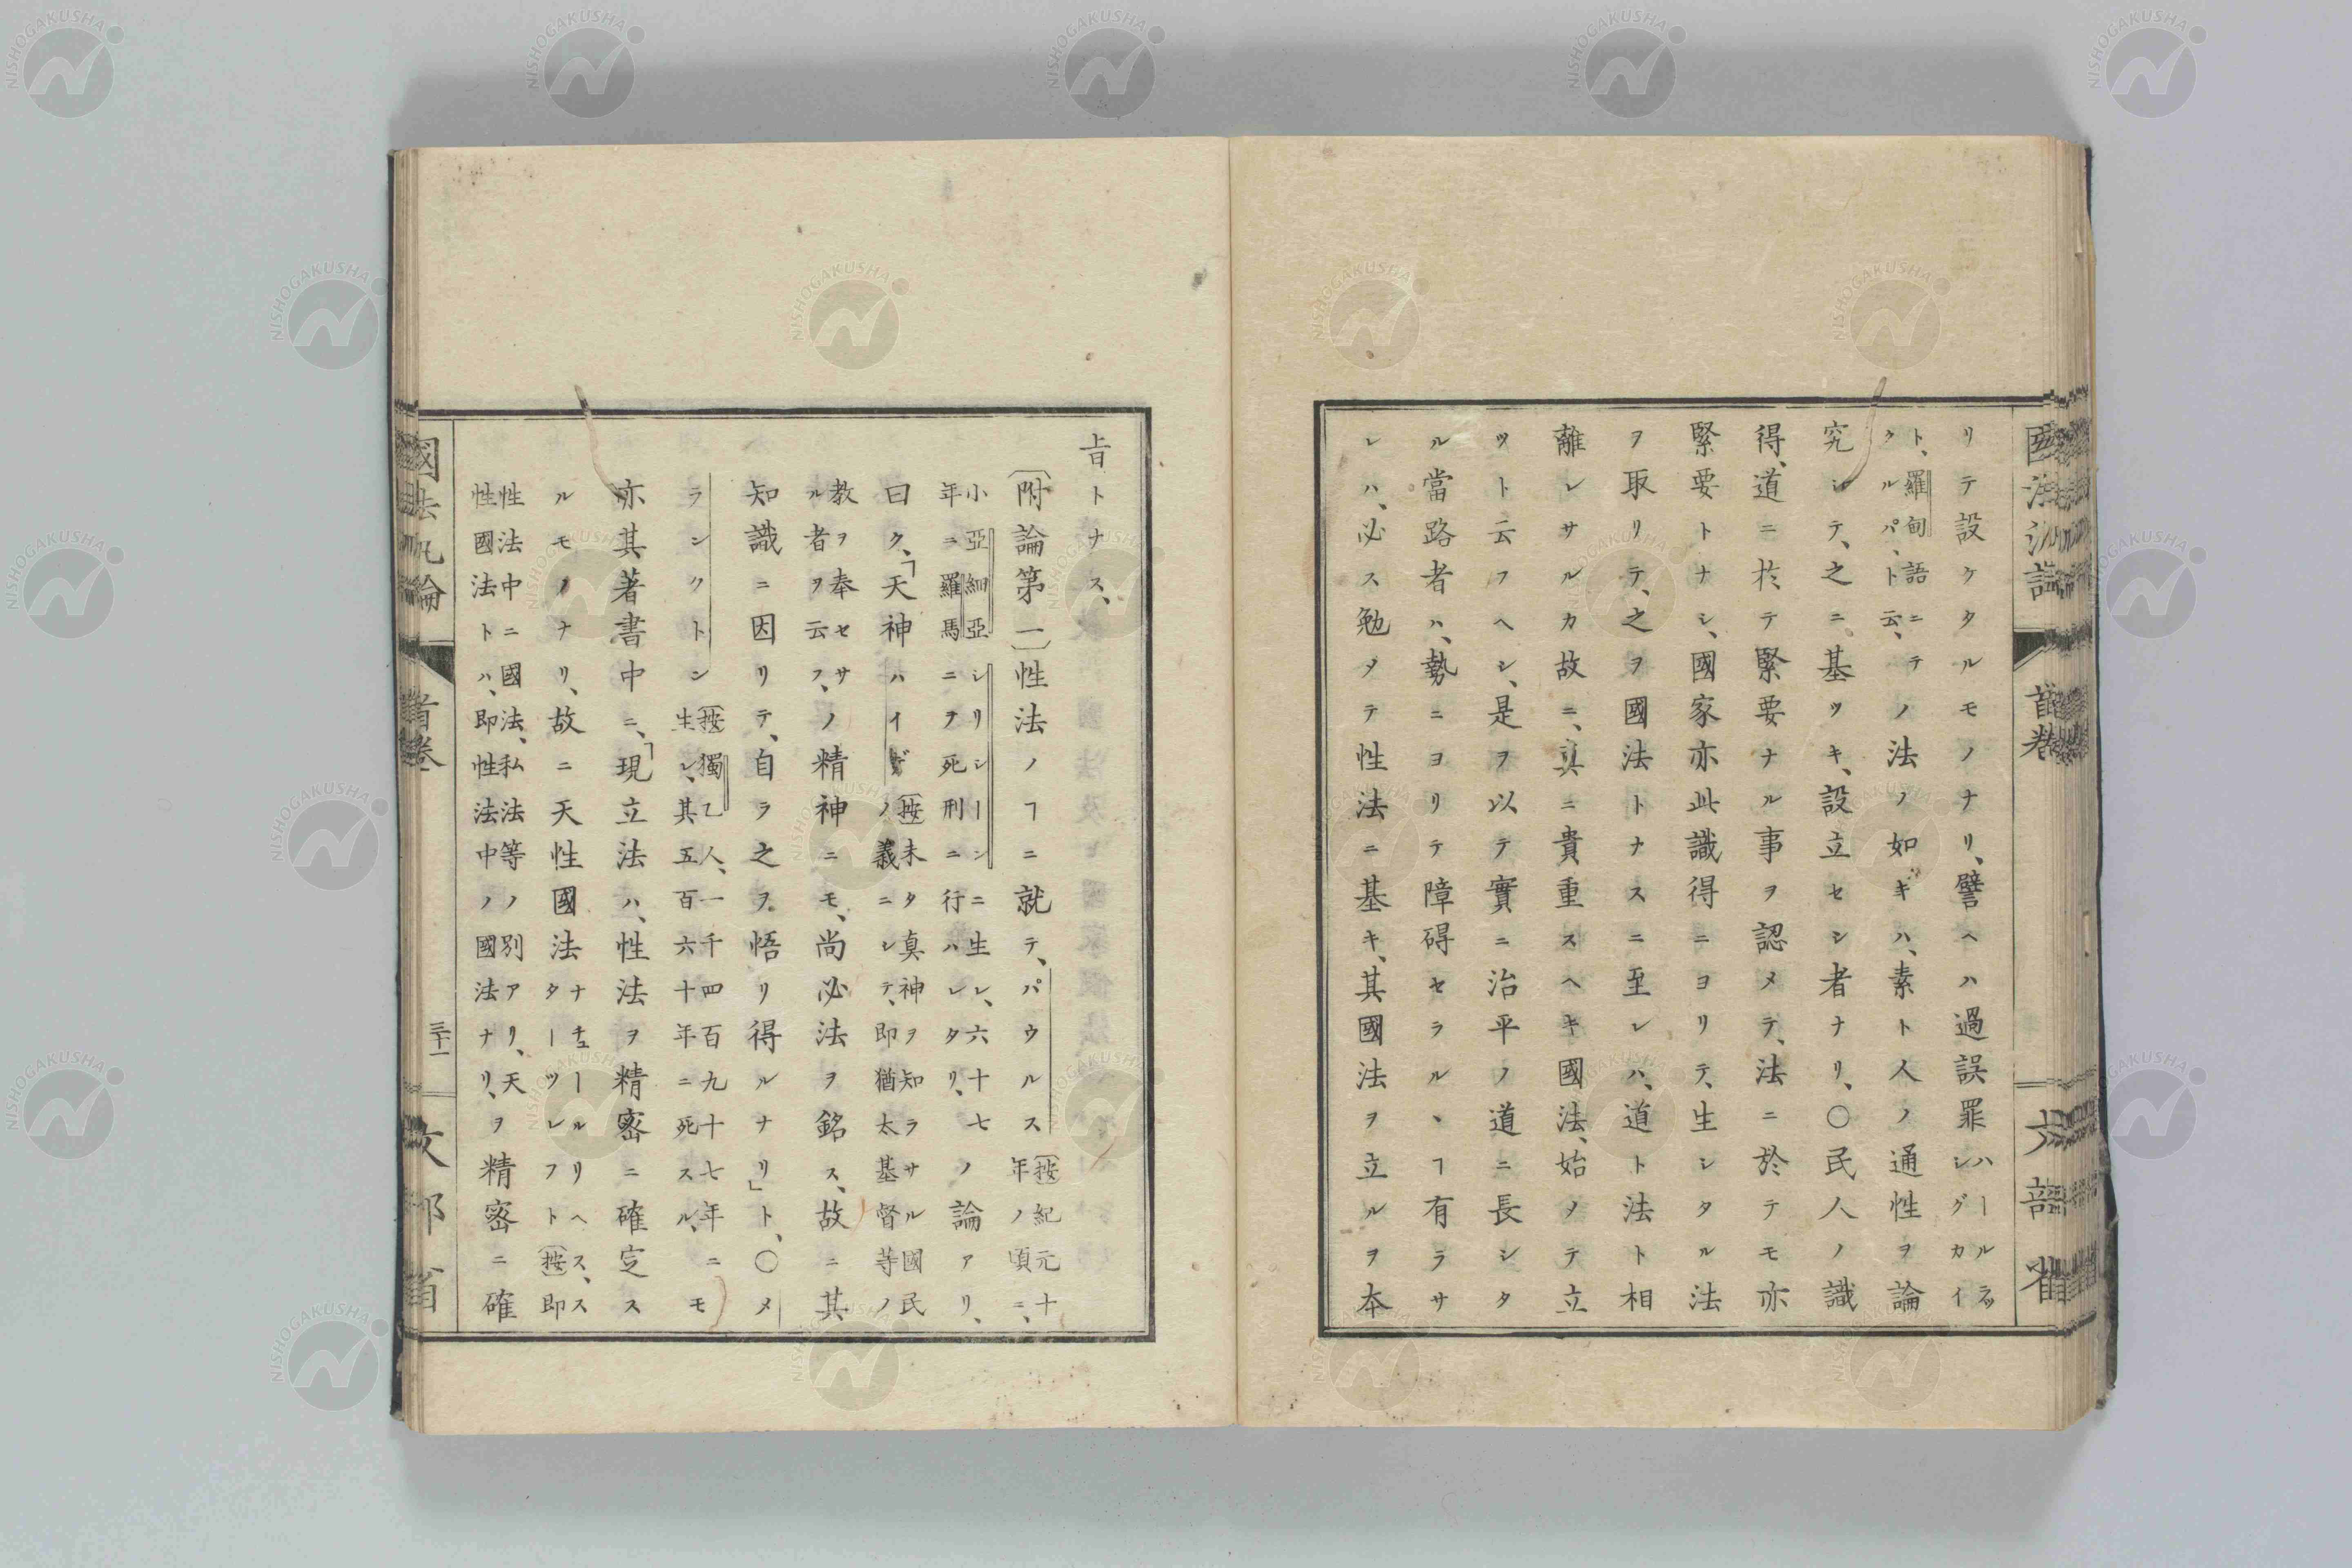 リテ設ケタルモノナリ、譬ヘハ過誤罪ハールラッシグカイイ
ト、羅甸語ニテクルパ、ト云、ノ法ノ如キハ、素ト人ノ通性ヲ論
究シテ、之ニ基ツキ、設立セシ者ナリ、〇民人ノ識
得、道ニ於テ緊要ナル事ヲ認メテ、法ニ於テモ亦
緊要トナシ、國家亦此識得ニヨリテ、生シタル法
ヲ取リテ、之ヲ國法トナスニ至レハ、道ト法ト相
離レサルカ故ニ、真ニ貴重スヘキ國法、始メテ立
ツト云フヘシ、是ヲ以テ實ニ治平ノ道ニ長シタ
ル當路者ハ、勢ニヨリテ障碍セラルヽヿ有ラサ
レハ、必ス勉メテ性法ニ基キ、其國法ヲ立ルヲ本
旨トナス、
〔附論第一〕性法ノヿニ就テ、パウルス〔按紀元十年ノ頃ニ、
小亞細亞シリシーシニ生レ、六十七年ニ羅馬ニテ死刑ニ行ハレタリ、ノ論アリ、
曰ク、「天神ハイデン〔按未タ真神ヲ知ラサル國民ノ義ニシテ、即猶太基督等ノ
教ヲ奉セサル者ヲ云フ、ノ精神ニモ、尚必法ヲ銘ス、故ニ其
知識ニ因リテ、自ラ之ヲ悟リ得ルナリ」ト、〇メ
ランクトン〔按獨乙人、一千四百九十七年ニ生レ、其五百六十年ニ死スル、ニモ
亦其著書中ニ、「現立法ハ、性法ヲ精密ニ確定ス
ルモノナリ、故ニ天性國法ナチュールリヘス、スターツレフト〔按即
性法中ニ國法、私法等ノ別アリ、天性國法トハ、即性法中ノ國法ナリ、ヲ精密ニ確
國法汎論
首卷
三十一
文部省
國法汎論
首卷
文部省